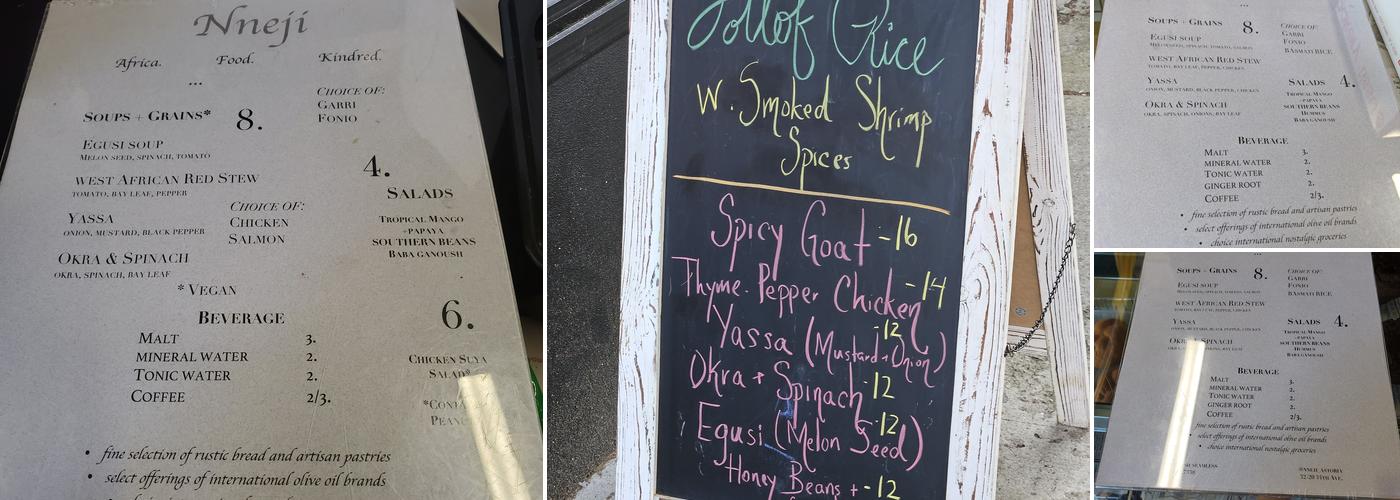 Nneji
Africa. Food. Kindred.
...
CHOICE OF:
GARRI
FONIO
SOUPS + GRAINS* 8.
EGUSI SOUP
MELON SEED, SPINACH, TOMATO
WEST AFRICAN RED STEW
TOMATO, BAY LEAF, PEPPER
YASSA
ONION, MUSTARD, BLACK PEPPER
CHOICE OF:
CHICKEN
SALMON
OKRA & SPINACH
OKRA, SPINACH, BAY LEAF
*VEGAN
4.
SALADS
TROPICAL MANGO
+PAPAYA
SOUTHERN BEANS
BABA GANOUSH
BEVERAGE
MALT 3.
MINERAL WATER 2.
TONIC WATER 2.
COFFEE 2/3.
6.
CHICKEN SUYA
SALAD*
• fine selection of rustic bread and artisan pastries
• select offerings of international olive oil brands
Jollof Rice
W. Smoked Shrimp
Spices
Spicy Goat -16
Thyme. Pepper Chicken -14
Yassa (Mustard + Onion) -12
Okra + Spinach -12
Egusi (Melon Seed) -12
Honey Beans + -12
...
SOUPS + GRAINS 8.
EGUSI SOUP
MELON SEED, SPINACH, TOMATO, SALMON
WEST AFRICAN RED STEW
TOMATO, BAY LEAF, PEPPER, CHICKEN
YASSA
ONION, MUSTARD, BLACK PEPPER, CHICKEN
OKRA & SPINACH
OKRA, SPINACH, ONIONS, BAY LEAF
CHOICE OF:
GARRI
FONIO
BASMATI RICE
SALADS 4.
TROPICAL MANGO
+PAPAYA
SOUTHERN BEANS
HUMMUS
BABA GANOUSH
BEVERAGE
MALT 3.
MINERAL WATER 2.
TONIC WATER 2.
GINGER ROOT 2.
COFFEE 2/3.
• fine selection of rustic bread and artisan pastries
• select offerings of international olive oil brands
• choice international nostalgic groceries
SOUPS + GRAINS 8.
EGUSI SOUP
MELON SEED, SPINACH, TOMATO, SALMON
WEST AFRICAN RED STEW
TOMATO, BAY LEAF, PEPPER, CHICKEN
YASSA
ONION, MUSTARD, BLACK PEPPER, CHICKEN
OKRA & SPINACH
ONIONS, BAY LEAF
CHOICE OF:
GARRI
FONIO
BASMATI RICE
SALADS 4.
TROPICAL MANGO
+PAPAYA
SOUTHERN BEANS
HUMMUS
BABA GANOUSH
BEVERAGE
MALT 3.
MINERAL WATER 2.
TONIC WATER 2.
GINGER ROOT 2.
COFFEE 2/3.
• fine selection of rustic bread and artisan pastries
• select offerings of international olive oil brands
• choice international nostalgic groceries
SEAMLESS
ASTORIA
32-20 34TH AVE.